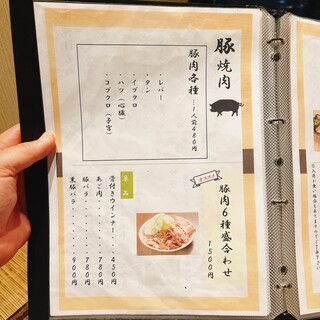 豚焼肉
豚肉各種…1人前480円
・レバー
・タン
・イブクロ
・ハツ(心臓)
・コブクロ(子宮)
オススメ
豚肉6種盛合わせ
1500円
単品
骨付きウインナー・・・450円
あご肉・・・・・・・780円
豚バラ・・・・・・・780円
黒豚バラ・・・・・・900円